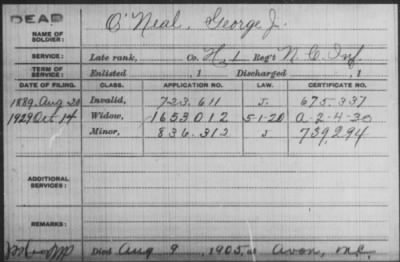 DEAD
NAME OF SOLDIER: O'Neal, George J.
SERVICE: Late rank, Co. H, 1 Reg't N.C. Inf.
TERM OF SERVICE: Enlisted , 1 Discharged , 1
DATE OF FILING. CLASS. APPLICATION NO. LAW. CERTIFICATE NO.
1889, Aug. 20 Invalid, 723.611 J. 675.337
1929 Oct 14 Widow, 1653012 5-1-20 A-2-4-30
Minor, 836.312 J 739,294
ADDITIONAL SERVICES:
REMARKS:
Died Aug 9, 1905, at Avon, N.C.